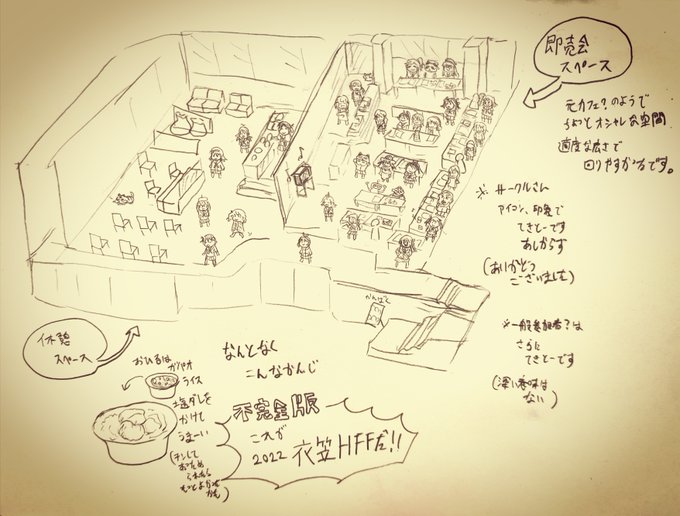 即売会
スペース
元カフェ?のようで
ちょっとオシャレな空間
適度な広さで
回りやすかったです。
※ サークルさん
アイコン、印象で
てきとーです
あしからず
(ありがとう
ございました)
※一般参加者?は
さらに
てきとーです
(深い意味は
ない)
かんばん
休憩
スペース
なんとなく
こんなかんじ
おひるは
ガツオ
ライス
塩ダレを
かけて
うまーい
不完全版
これが
2022 衣笠HFFだ!!